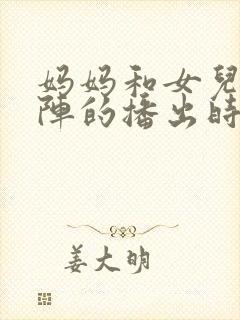 妈妈和女兒
陣的播出時
姜大明